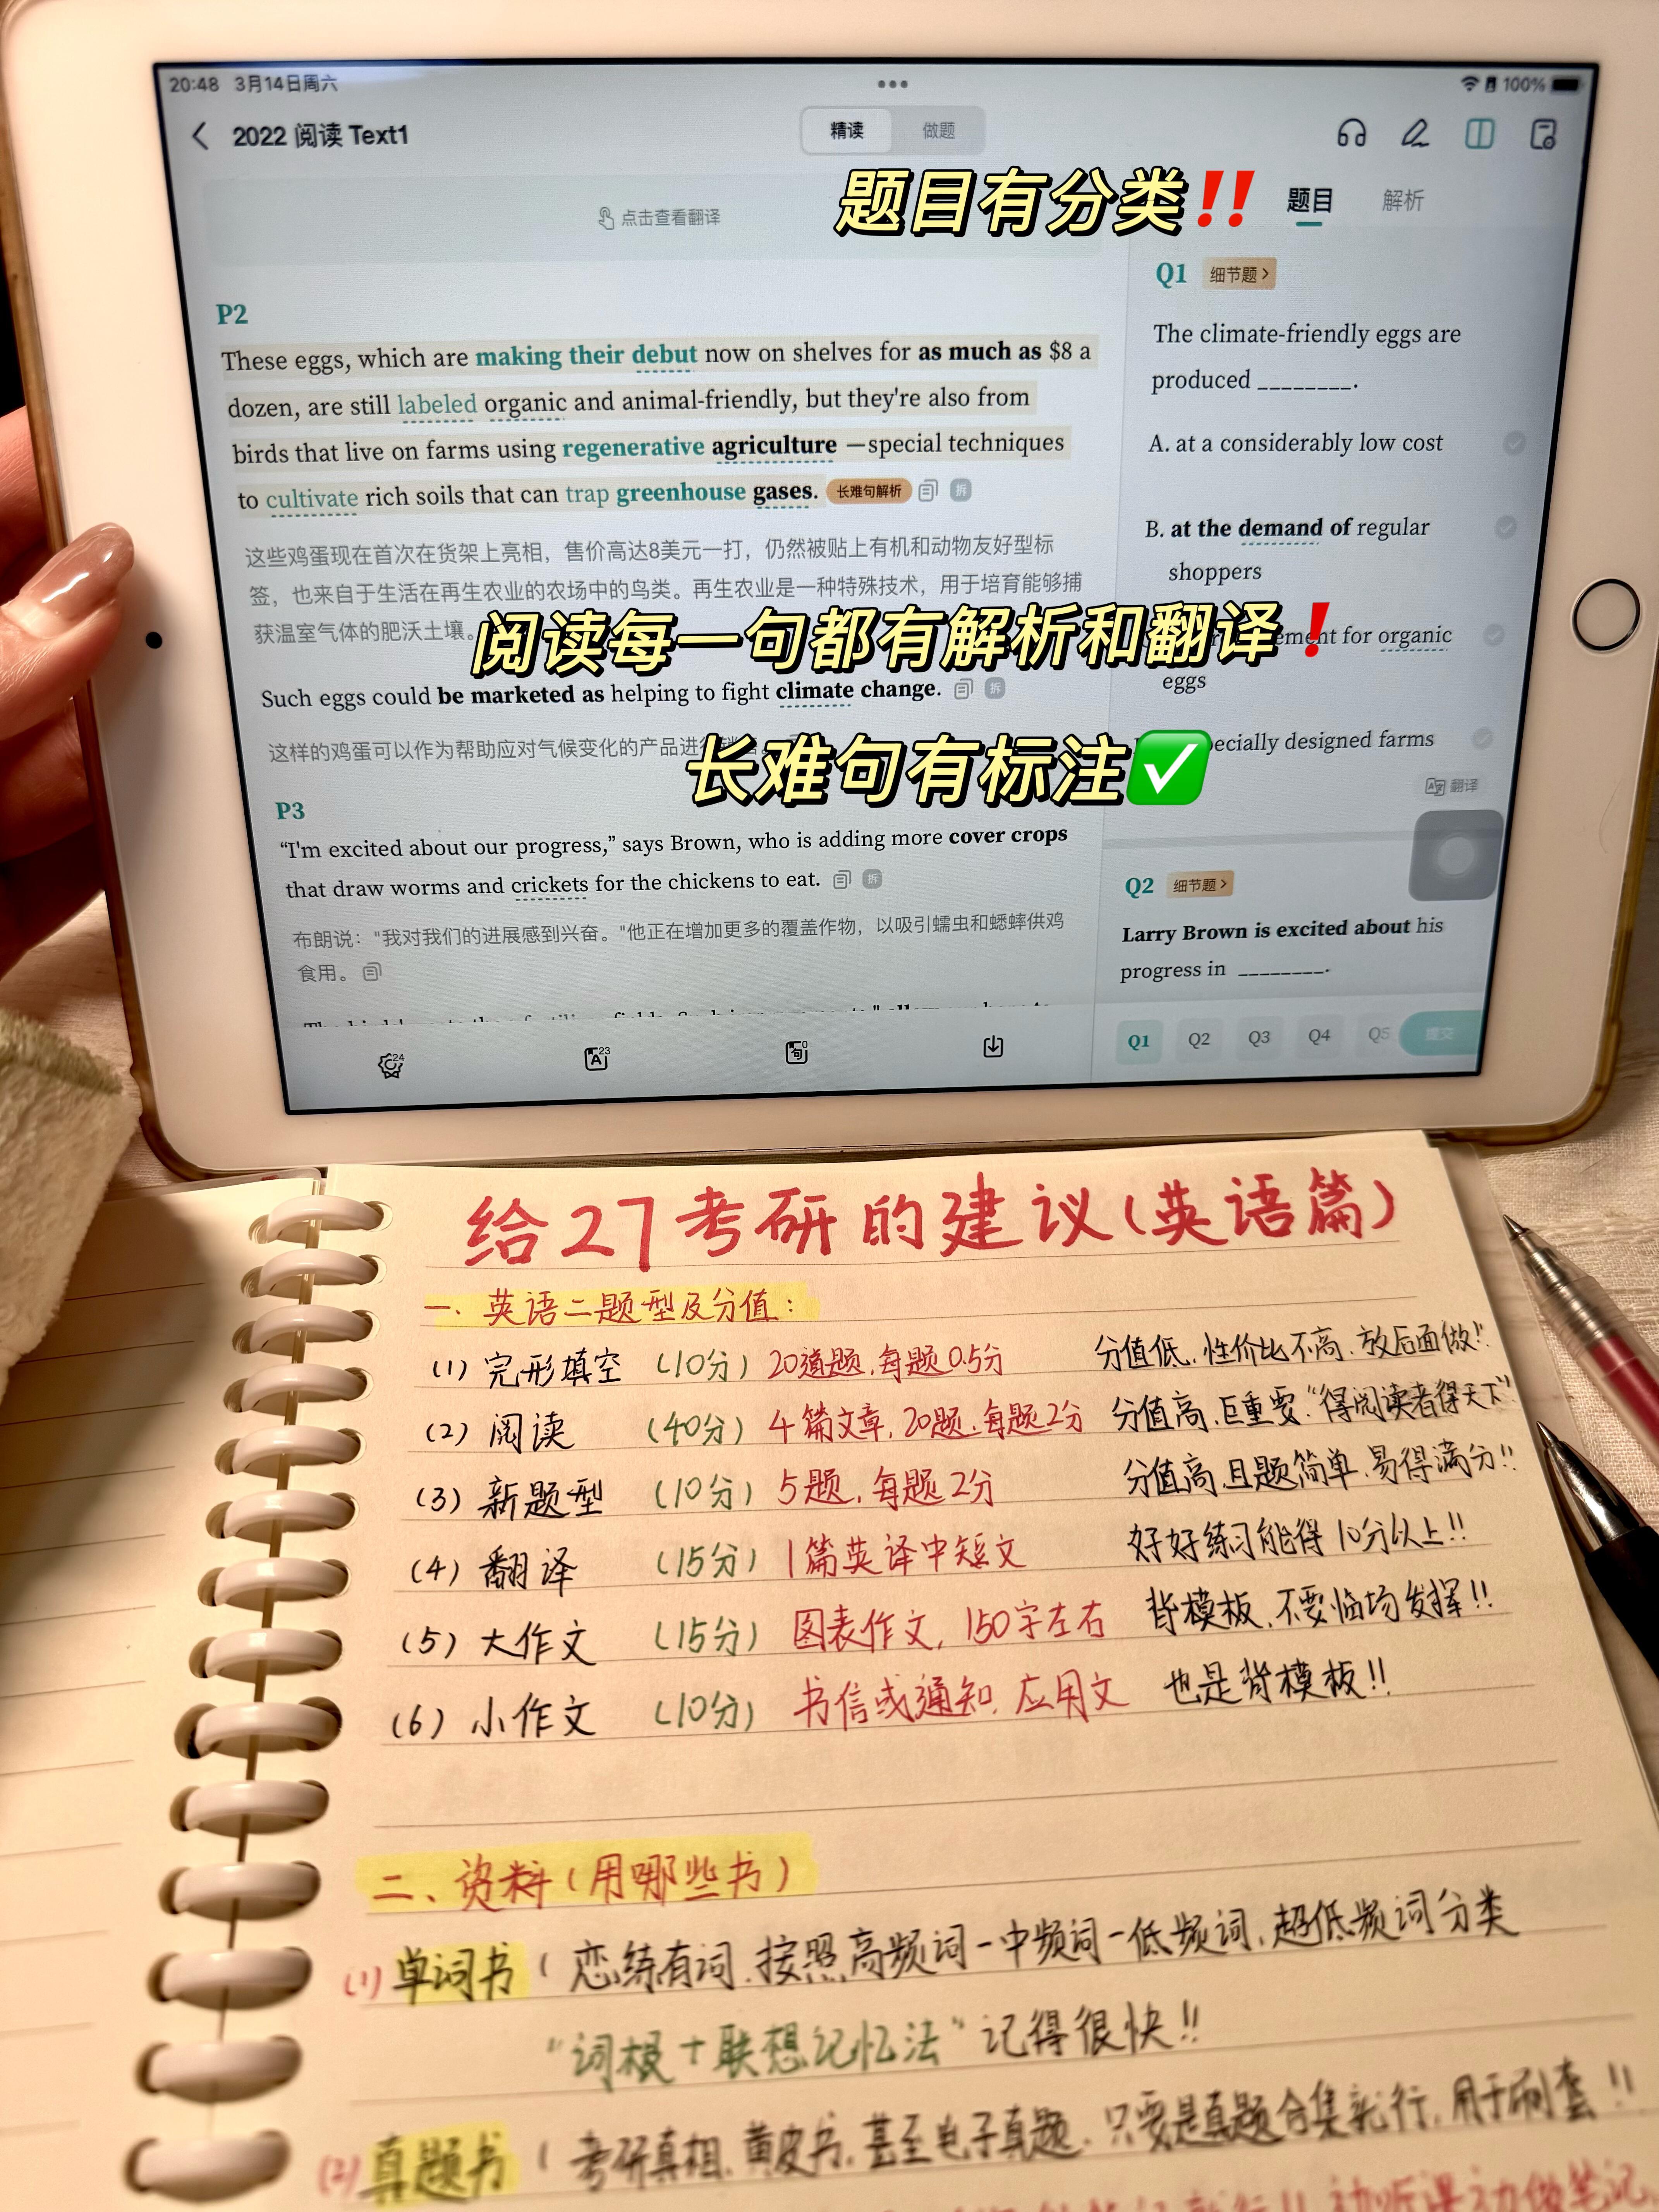 20:48 3月14日周六
100%
2022 阅读 Text1
精读
做题
题目有分类‼️
题目
解析
点击查看翻译
P2
These eggs, which are making their debut now on shelves for as much as $8 a
dozen, are still labeled organic and animal-friendly, but they're also from
birds that live on farms using regenerative agriculture —special techniques
to cultivate rich soils that can trap greenhouse gases. 长难句解析 拆
这些鸡蛋现在首次在货架上亮相，售价高达8美元一打，仍然被贴上有机和动物友好型标
签，也来自于生活在再生农业的农场中的鸟类。再生农业是一种特殊技术，用于培育能够捕
获温室气体的肥沃土壤。
阅读每一句都有解析和翻译❗
Such eggs could be marketed as helping to fight climate change. 拆
这样的鸡蛋可以作为帮助应对气候变化的产品进行
长难句有标注✅
P3
“I'm excited about our progress,” says Brown, who is adding more cover crops
that draw worms and crickets for the chickens to eat. 拆
布朗说："我对我们的进展感到兴奋。"他正在增加更多的覆盖作物，以吸引蠕虫和蟋蟀供鸡
食用。
24
A 23
句 0
Q1 细节题 >
The climate-friendly eggs are
produced ________.
A. at a considerably low cost
B. at the demand of regular
shoppers
for organic
eggs
designed farms
翻译
Q2 细节题 >
Larry Brown is excited about his
progress in ________.
Q1 Q2 Q3 Q4 Q5 提交
给27考研的建议(英语篇)
一、英语二题型及分值：
(1) 完形填空 (10分) 20道题,每题0.5分 分值低,性价比不高,放后面做!!
(2) 阅读 (40分) 4篇文章,20题,每题2分 分值高,巨重要,“得阅读者得天下”
(3) 新题型 (10分) 5题,每题2分 分值高,且题简单,易得满分!!
(4) 翻译 (15分) 1篇英译中短文 好好练习能得10分以上!!
(5) 大作文 (15分) 图表作文,150字左右 背模板,不要临场发挥!!
(6) 小作文 (10分) 书信或通知,应用文 也是背模板!!
二、资料(用哪些书)
(1) 单词书 ( 恋练有词,按照高频词-中频词-低频词,超低频词分类
“词根+联想记忆法”记得很快!!
(2) 真题书 ( 考研真相,黄皮书,甚至电子真题,只要是真题合集就行,用于刷套!!